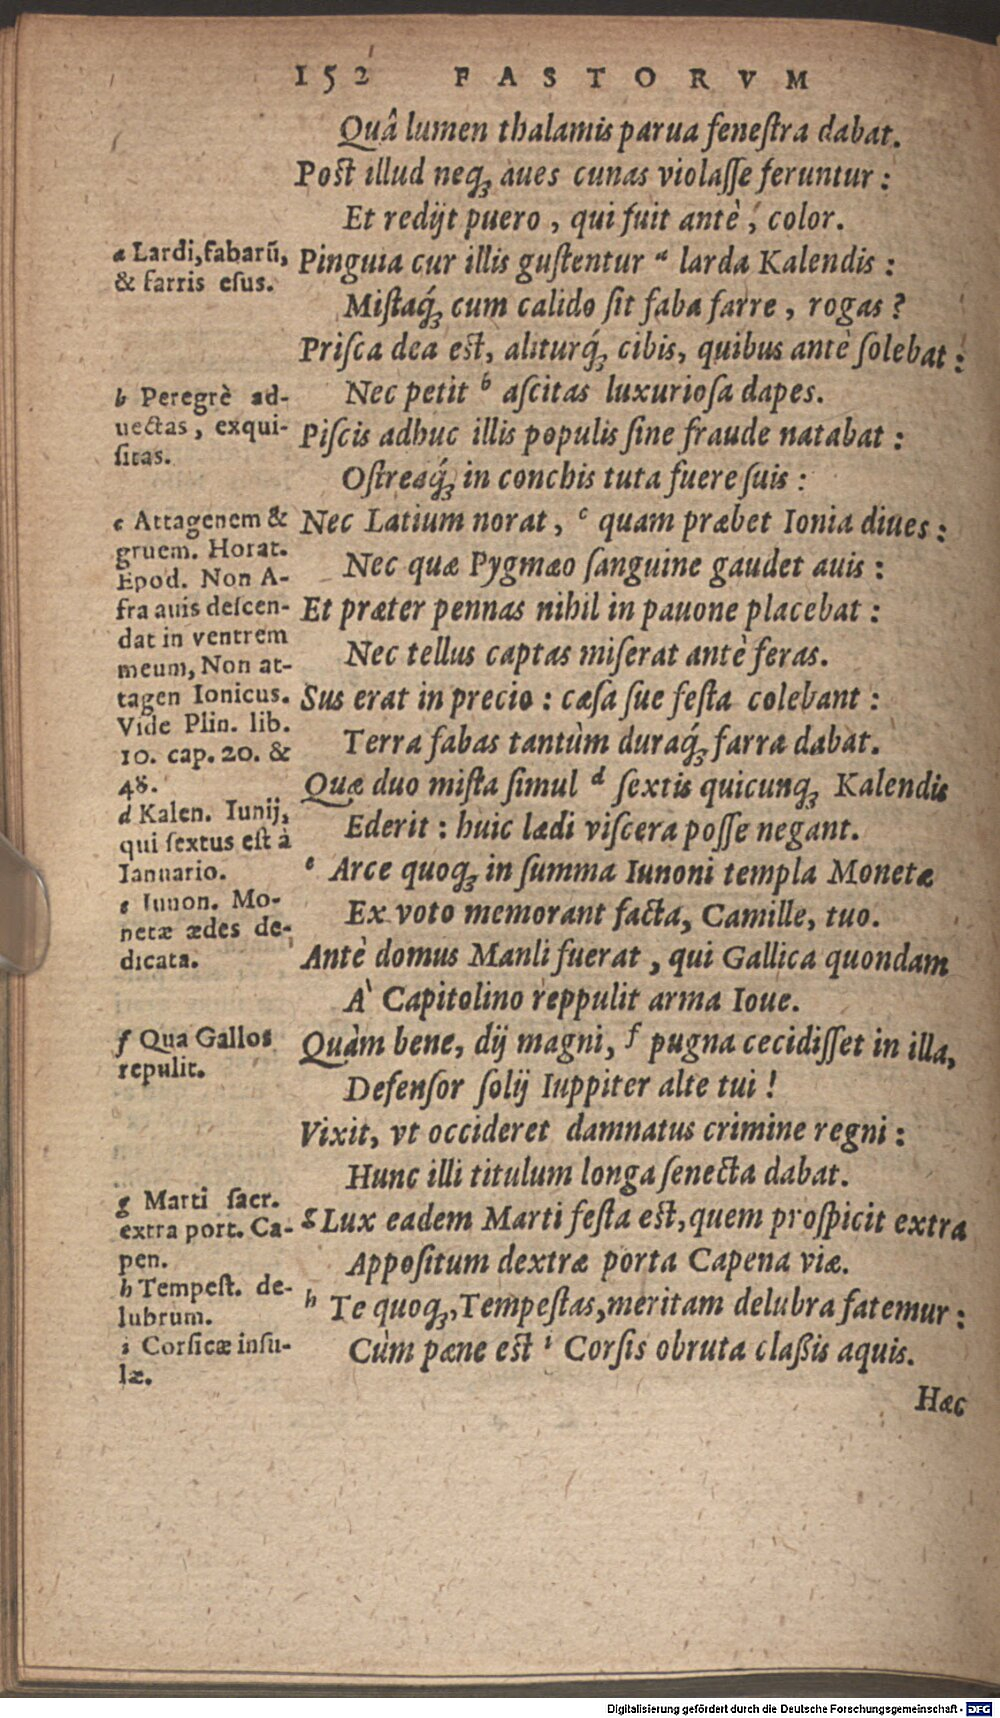 152 FASTORVM
Quâ lumen thalamis parua feneſtra dabat.
Poſt illud neq́ꝫ aues cunas violaſſe feruntur :
Et redijt puero , qui fuit antè , color.
a Lardi, fabarũ,
& farris eſus.
Pinguia cur illis guſtentur a larda Kalendis :
Miſtaq́ꝫ cum calido ſit faba farre , rogas ?
Priſca dea eſt, aliturq́ꝫ cibis, quibus antè ſolebat :
b Peregrè ad-
uectas , exqui-
ſitas.
Nec petit b aſcitas luxurioſa dapes.
Piſcis adhuc illis populis ſine fraude natabat :
Oſtreaq́ꝫ in conchis tuta fuere ſuis :
c Attagenem &
gruem. Horat.
Epod. Non A-
fra auis deſcen-
dat in ventrem
meum, Non at-
tagen Ionicus.
Vide Plin. lib.
10. cap. 20. &
48.
Nec Latium norat , c quam præbet Ionia diues :
Nec quæ Pygmæo ſanguine gaudet auis :
Et præter pennas nihil in pauone placebat :
Nec tellus captas miſerat antè feras.
Sus erat in precio : cæſa ſue feſta colebant :
Terra fabas tantùm duraq́ꝫ farra dabat.
d Kalen. Iunij,
qui ſextus eſt à
Ianuario.
Quæ duo miſta ſimul d ſextis quicunqꝫ Kalendis
Ederit : huic lædi viſcera poſſe negant.
e Iunon. Mo-
netæ ædes de-
dicata.
e Arce quoqꝫ in ſumma Iunoni templa Monetæ
Ex voto memorant facta, Camille, tuo.
Antè domus Manli fuerat , qui Gallica quondam
A` Capitolino reppulit arma Ioue.
f Qua Gallos
repulit.
Quàm bene, dij magni, f pugna cecidiſſet in illa,
Defenſor ſolij Iuppiter alte tui !
Vixit, vt occideret damnatus crimine regni :
Hunc illi titulum longa ſenecta dabat.
g Marti ſacr.
extra port. Ca-
pen.
g Lux eadem Marti feſta eſt, quem proſpicit extra
Appoſitum dextræ porta Capena viæ.
h Tempeſt. de-
lubrum.
h Te quoqꝫ, Tempeſtas, meritam delubra fatemur :
i Corſicæ inſu-
læ.
Cùm pæne eſt i Corſis obruta claßis aquis.
Hæc
Digitalisierung gefördert durch die Deutsche Forschungsgemeinschaft - DFG